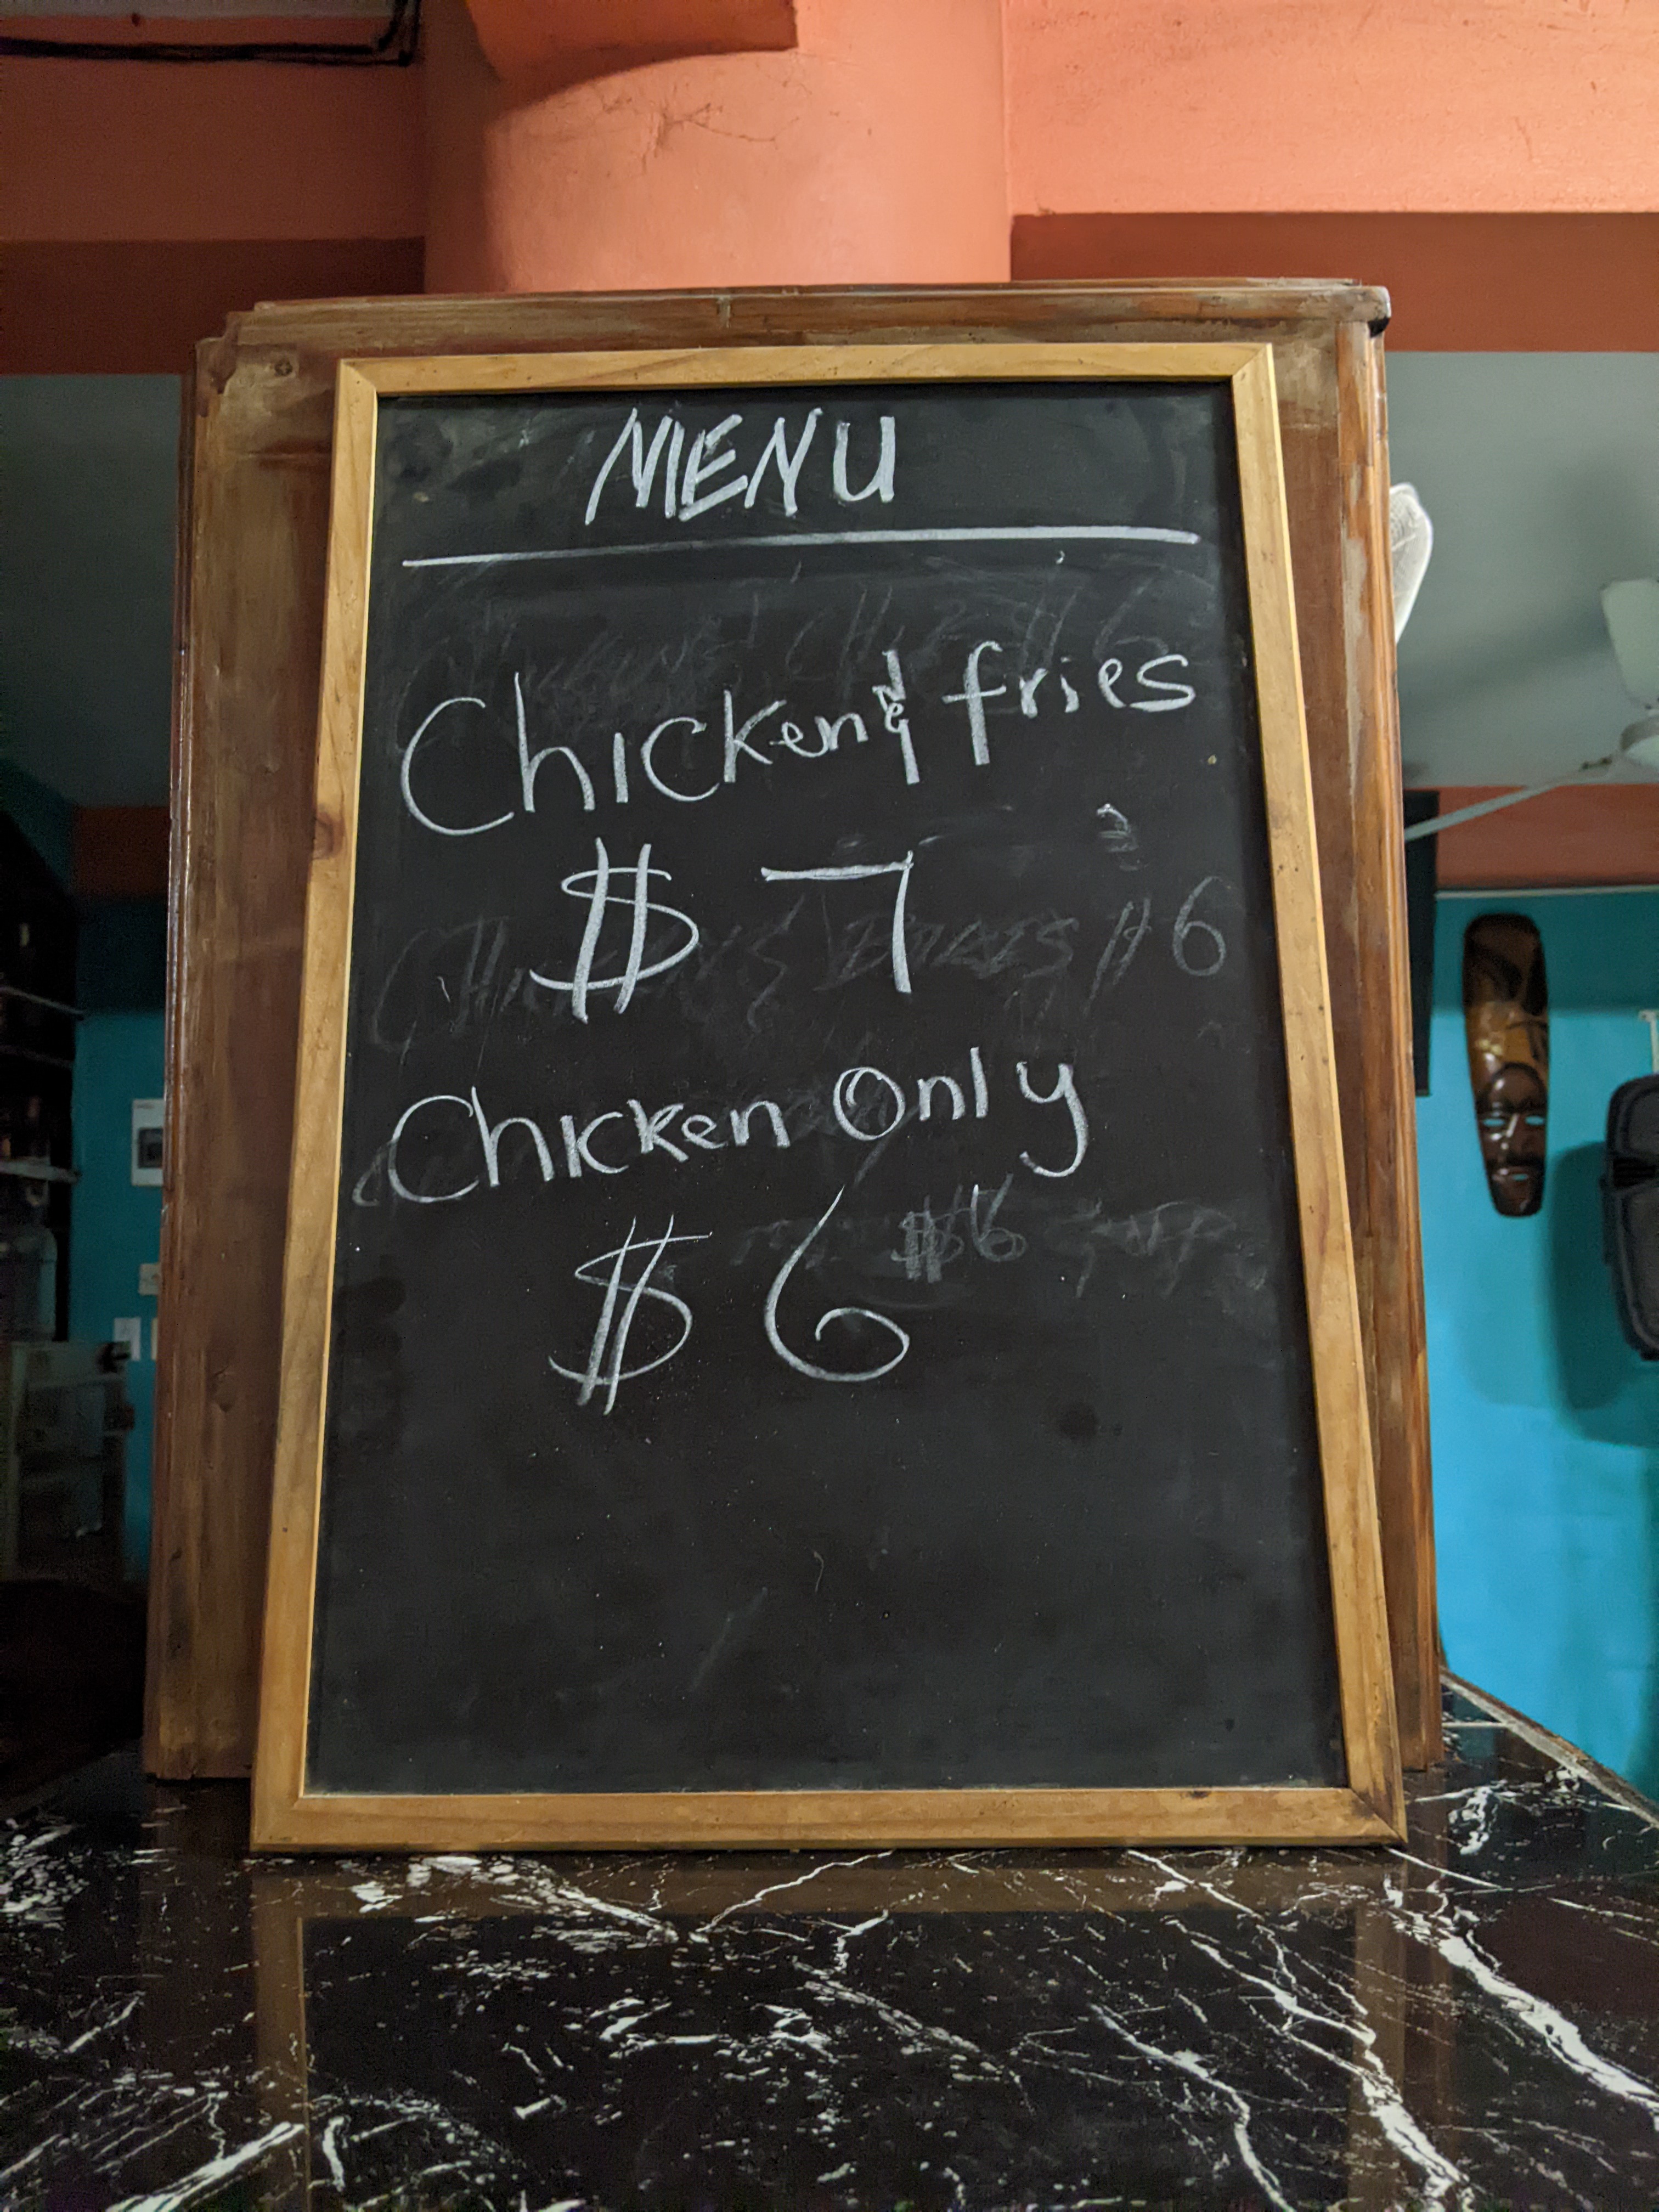 MENU
Chicken & fries
$ 7
$6
Chicken Only
$ 6 $6